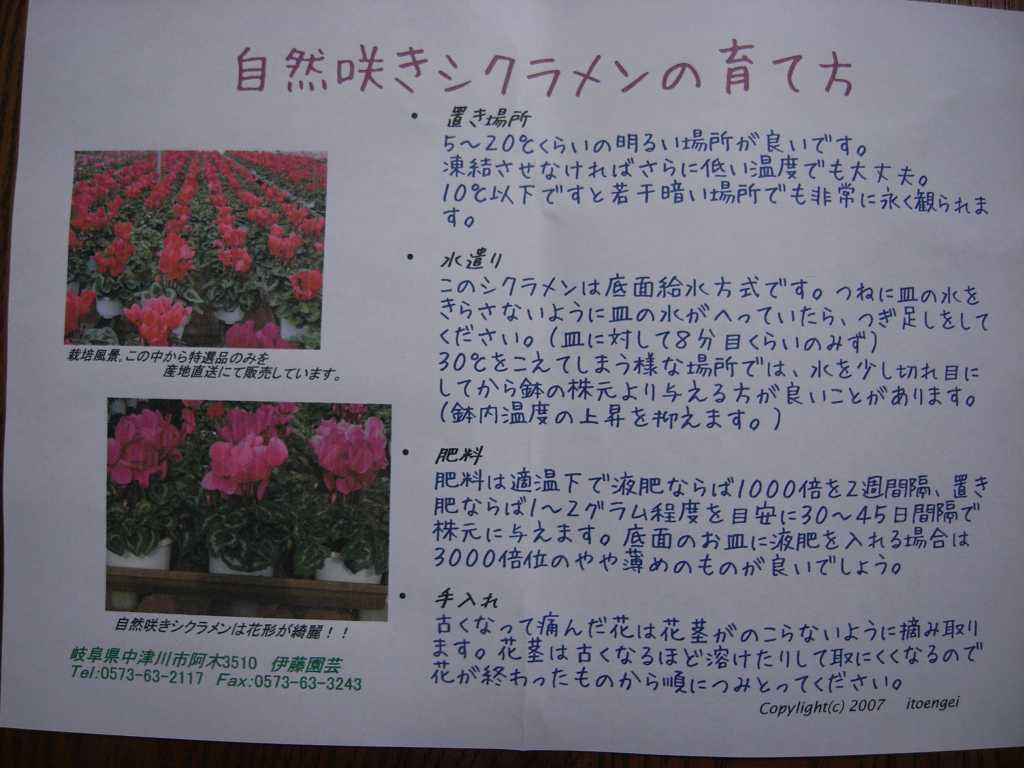 自然咲きシクラメンの育て方
• 置き場所
5～20℃くらいの明るい場所が良いです。
凍結させなければさらに低い温度でも大丈夫。
10℃以下ですと若干暗い場所でも非常に永く観られま
す。
• 水遣り
このシクラメンは底面給水方式です。つねに皿の水を
きらさないように皿の水がへっていたら、つぎ足しをして
ください。(皿に対して8分目くらいのみず)
30℃をこえてしまう様な場所では、水を少し切れ目に
してから鉢の株元より与える方が良いことがあります。
(鉢内温度の上昇を抑えます。)
• 肥料
肥料は適温下で液肥ならば1000倍を2週間隔、置き
肥ならば1～2グラム程度を目安に30～45日間隔で
株元に与えます。底面のお皿に液肥を入れる場合は
3000倍位のやや薄めのものが良いでしょう。
• 手入れ
古くなって痛んだ花は花茎がのこらないように摘み取り
ます。花茎は古くなるほど溶けたりして取にくくなるので
花が終わったものから順につみとってください。
Copylight(c) 2007 itoengei
栽培風景。この中から特選品のみを
産地直送にて販売しています。
自然咲きシクラメンは花形が綺麗！！
岐阜県中津川市阿木3510 伊藤園芸
Tel:0573-63-2117 Fax:0573-63-3243